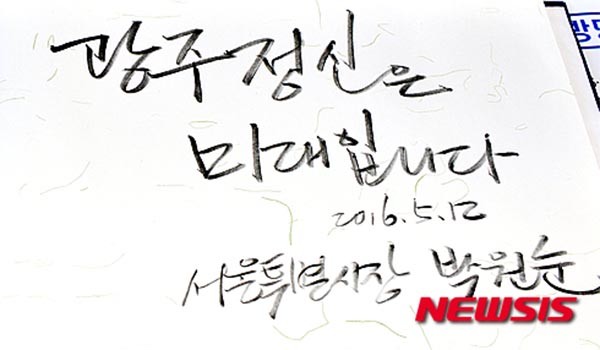 광주정신은
미래입니다
2016.5.12
서울특별시장 박원순
NEWSIS